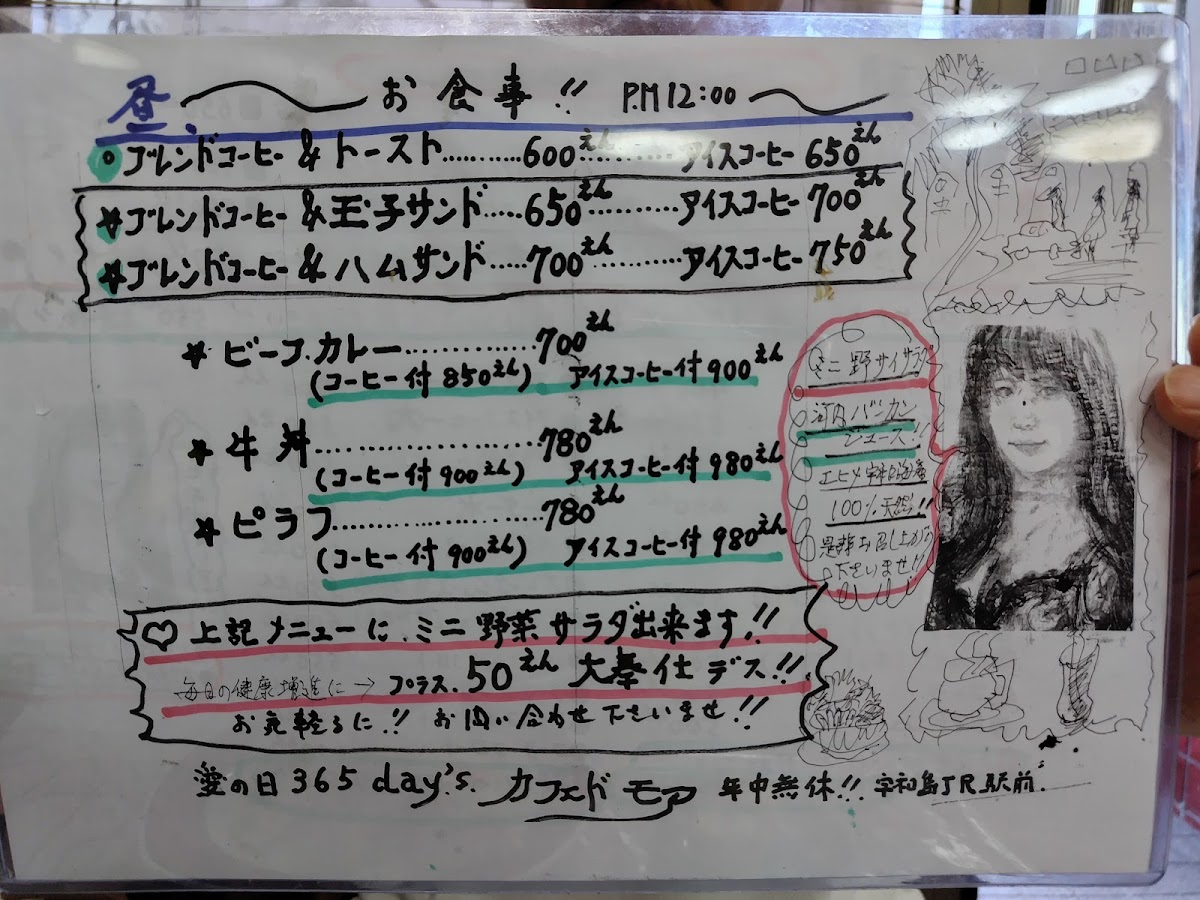 昼 お食事!! PM12:00
ブレンドコーヒー & トースト..........600えん.........アイスコーヒー 650えん
ブレンドコーヒー & 玉子サンド.....650えん.........アイスコーヒー 700えん
ブレンドコーヒー & ハムサンド.....700えん.........アイスコーヒー 750えん
ビーフカレー..............700えん
(コーヒー付 850えん) アイスコーヒー付 900えん
牛丼......................780えん
(コーヒー付 900えん) アイスコーヒー付 980えん
ピラフ.....................780えん
(コーヒー付 900えん) アイスコーヒー付 980えん
ミニ野サイサラダ
河内バンカン
ジュース!!
エヒメ宇和島産
100%天然!!
是非お召し上がり
下さいませ!!
♡ 上記メニューに、ミニ野菜サラダ出来ます!!
毎日の健康増進に→ プラス.50えん 大奉仕デス!!
お気軽るに!! お問い合わせ下さいませ!!
愛の日 365 day's. カフェド モア 年中無休!! 宇和島JR駅前